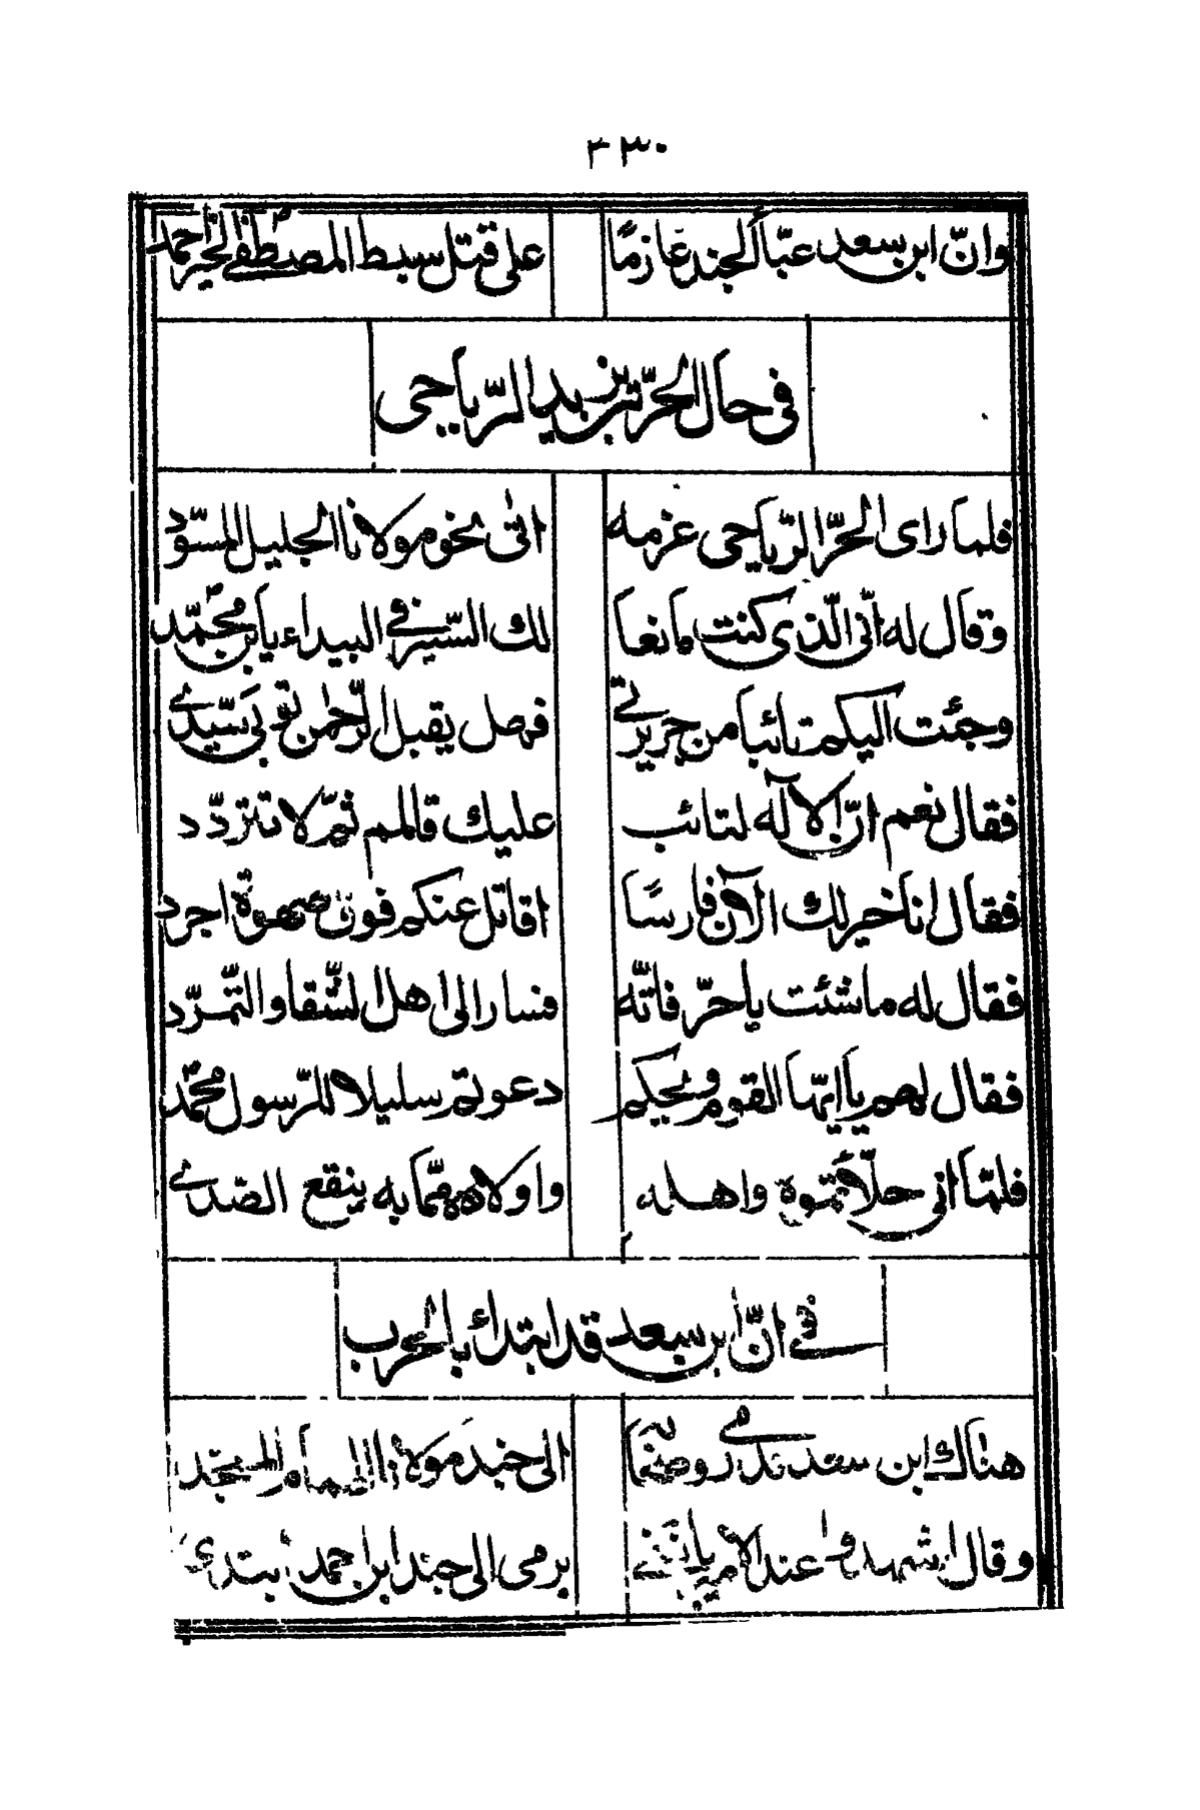 ٢٣٠
وانّ ابن سعد عبّأ الجند عازمًا على قتل سبط المصطفى الخير احمد
فى حال الحرّ بن يزيد الرّياحى
فلما راى الحرّ الرّياحى عزمه اتى نحو مولانا الجليل المسوّد
وقال له انّى الّذى كنت مانعا لك السّير فى البيداء يابن محمّد
وجئت اليكم تائبا من جريرتى فهل يقبل الرّحمن توبى سيّدى
فقال نعم انّ الاله لتائب عليك قالمم ثمّ لا تتردّد
فقال انا خير لك الآن فارسًا اقاتل عنكم فوق صهوة اجرد
فقال له ما شئت ياحرّ فانّه فسار الى اهل الشّقا والتّمرّد
فقال لهم يا ايّها القوم ويحكم دعوتم سليلا للرّسول محمّد
فلمّا اتى حلّأتموه واهله واولاده ممّا به ينقع الصّدى
فى انّ ابن سعد قد ابتدأ بالحرب
هناك ابن سعد مدمى الى جند مولانا الهمام
وقال اشهدوا عند الامير باننى برمى الى جند ابن احمد ابتدى